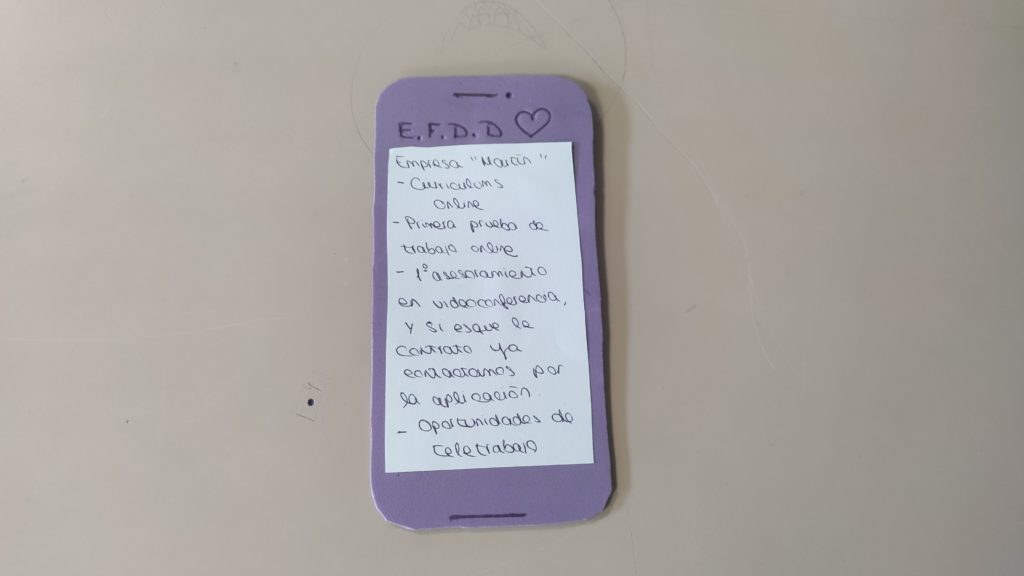 E.F.D.D
Empresa "Martín"
- Curriculums
online
- Primera prueba de
trabajo online
- 1º asesoramiento
en videoconferencia,
y si esque le
contrato ya
contactamos por
la aplicación.
- Oportunidades de
teletrabajo